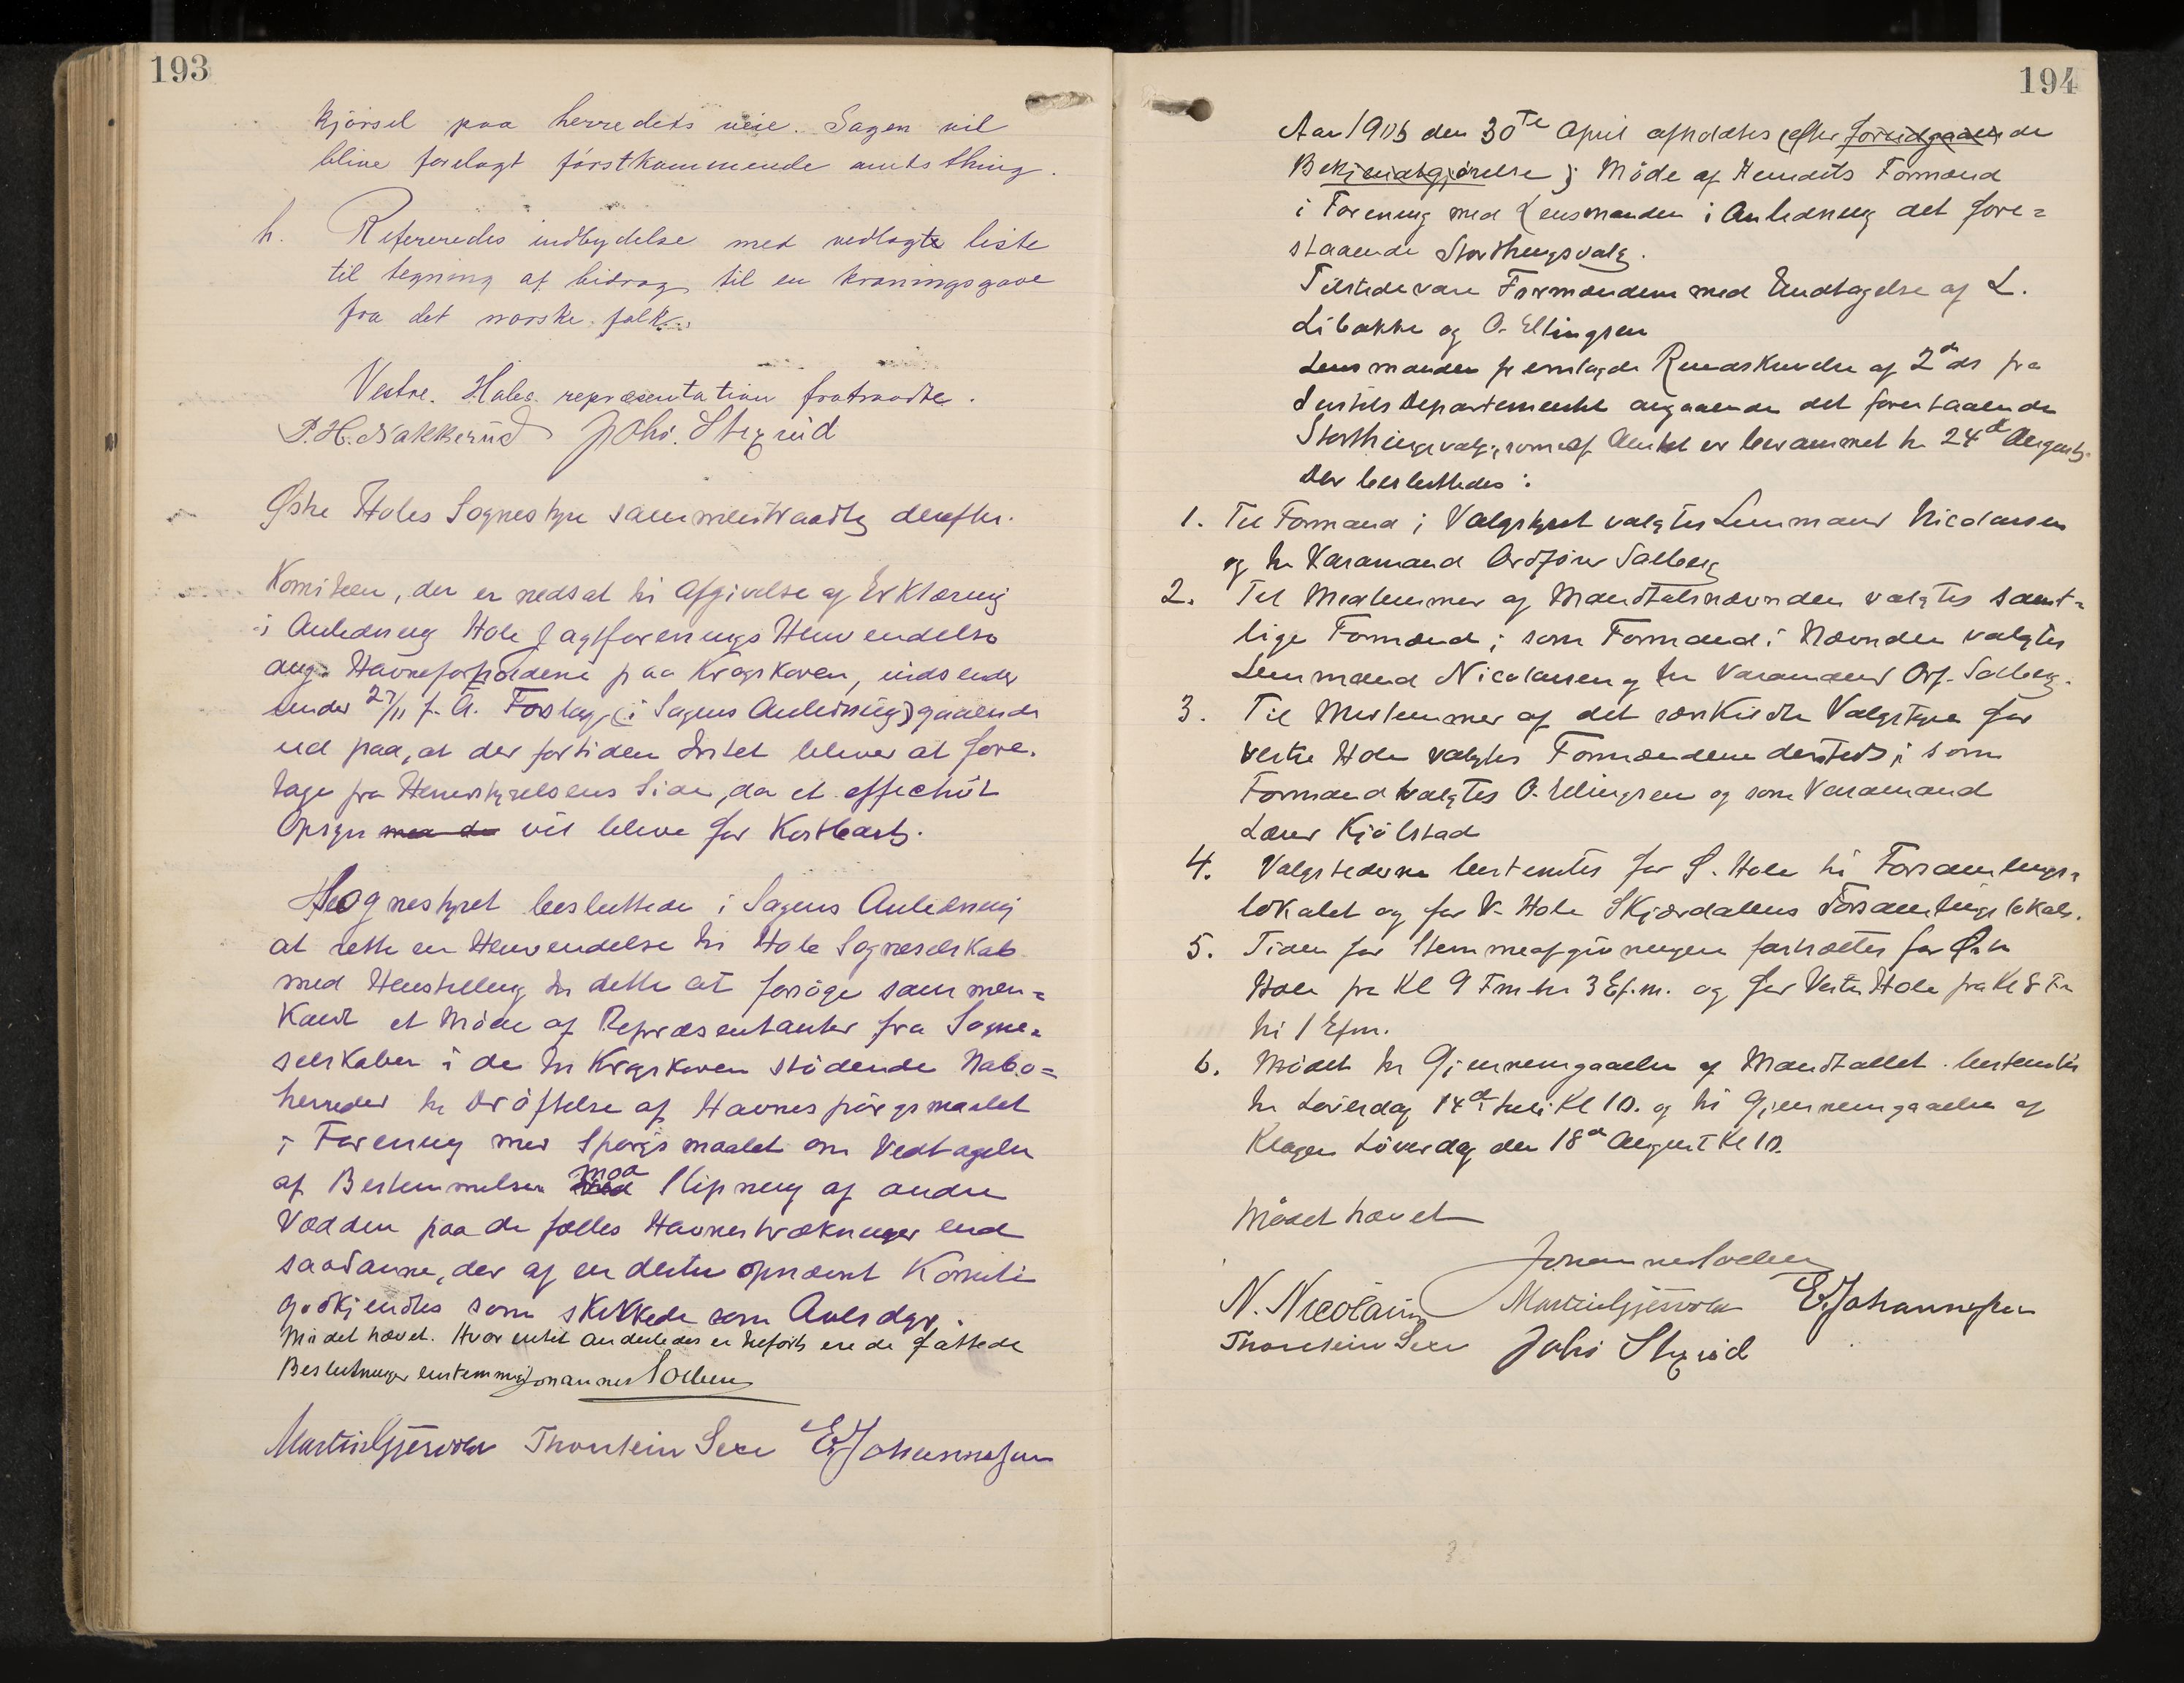 193
kjørsel paa herredets veie. Sagen vil
blive forelagt førstkommende amtsthing.
h. Refereredes indbydelse med vedlagte liste
til tegning af bidrag til en kroningsgave
fra det norske folk.
Vestre Holes repræsentation fratraadte.
P. H. Nakkerud Johs. Stixrud
Østre Holes Sognestyre sammentraadte derefter.
Komiteen, der er nedsat til Afgivelse af Erklæring
i Anledning Hole Jagtforenings Henvendelse
ang. Havneforholdene paa Krogskoven, indsender
under 27/11 f. A. Forslag (i Sagens Anledning) gaaende
ud paa, at der fortiden Intet bliver at fore-
tage fra Herredstyrelsens Side, da et effektivt
Opsyn med de vil blive for Kostbart.
Sognestyret besluttede i Sagens Anledning
at rette en Henvendelse til Hole Sogneselskab
med Henstilling til dette at forsøge sammen=
kaldt et Møde af Repræsentanter fra Sogne=
selskaber i de til Krogskoven stødende Nabo=
herreder til Drøftelse af Havnespørgsmaalet
i Forening med Spørgsmaalet om Vedtagelse
af Bestemmelser mod Slipning af andre
Vædder paa de fælles Havnestrækninger end
saadanne, der af en dertil opnævnt Komite
godkjendtes som skikkede som Avlsdyr.
Mødet hævet. Hvor intet anderledes er tilført ere de fattede
Beslutninger enstemmige Johannes Solberg
Martin Gjesvold Thorstein Sexe E. Johannesen
194
Aar 1906 den 30te April afholdtes (efter foreudgaaende
Bekjendtgjørelse) Møde af Herredets Formænd
i Forening med Lensmanden i Anledning det fore=
staaende Storthingsvalg.
Tilstede vare Formændene med Undtagelse af L.
Libakke og O. Ellingsen
Lensmanden fremlagde Rundskrivelse af 2den ds fra
Justits Departementet angaaende det forestaaende
Storthingsvalg, som af Amtet er berammet til 24de August.
Der besluttedes:
1. Til Formand i Valgstyret valgtes Lensmand Nicolaisen
og til Varamand Ordfører Solberg
2. Til Medlemmer af Mandtalsnævnden valgtes samt=
lige Formænd; som Formand i Nævnden valgtes
Lensmand Nicolaisen og til Varamand Orf. Solberg.
3. Til Medlemmer af det særskildte Valgstyre for
Vestre Hole valgtes Formændene dersteds; som
Formand valgtes O. Ellingsen og som Varamand
Lærer Kjølstad
4. Valgstederne bestemtes for Ø. Hole til Forsamlings=
lokalet og for V. Hole Skjærdalens Forsamlingslokale.
5. Tiden for Stemmeafgivningen fastsættes for Østre
Hole fra Kl 9 Fm til 3 Ef.m. og for Vestre Hole fra Kl 8 Fm
til 1 Efm.
6. Mødet til Gjennemgaaelse af Mandtallet bestemtes
til Løverdag 14de Juli Kl 10. og til Gjennemgaaelse af
Klager Løverdag den 18de August Kl 10.
Mødet hævet
Johannes Solberg
N. Nicolaisen Martin Gjesvold E. Johannesen
Thorstein Sexe Johs Stixrud